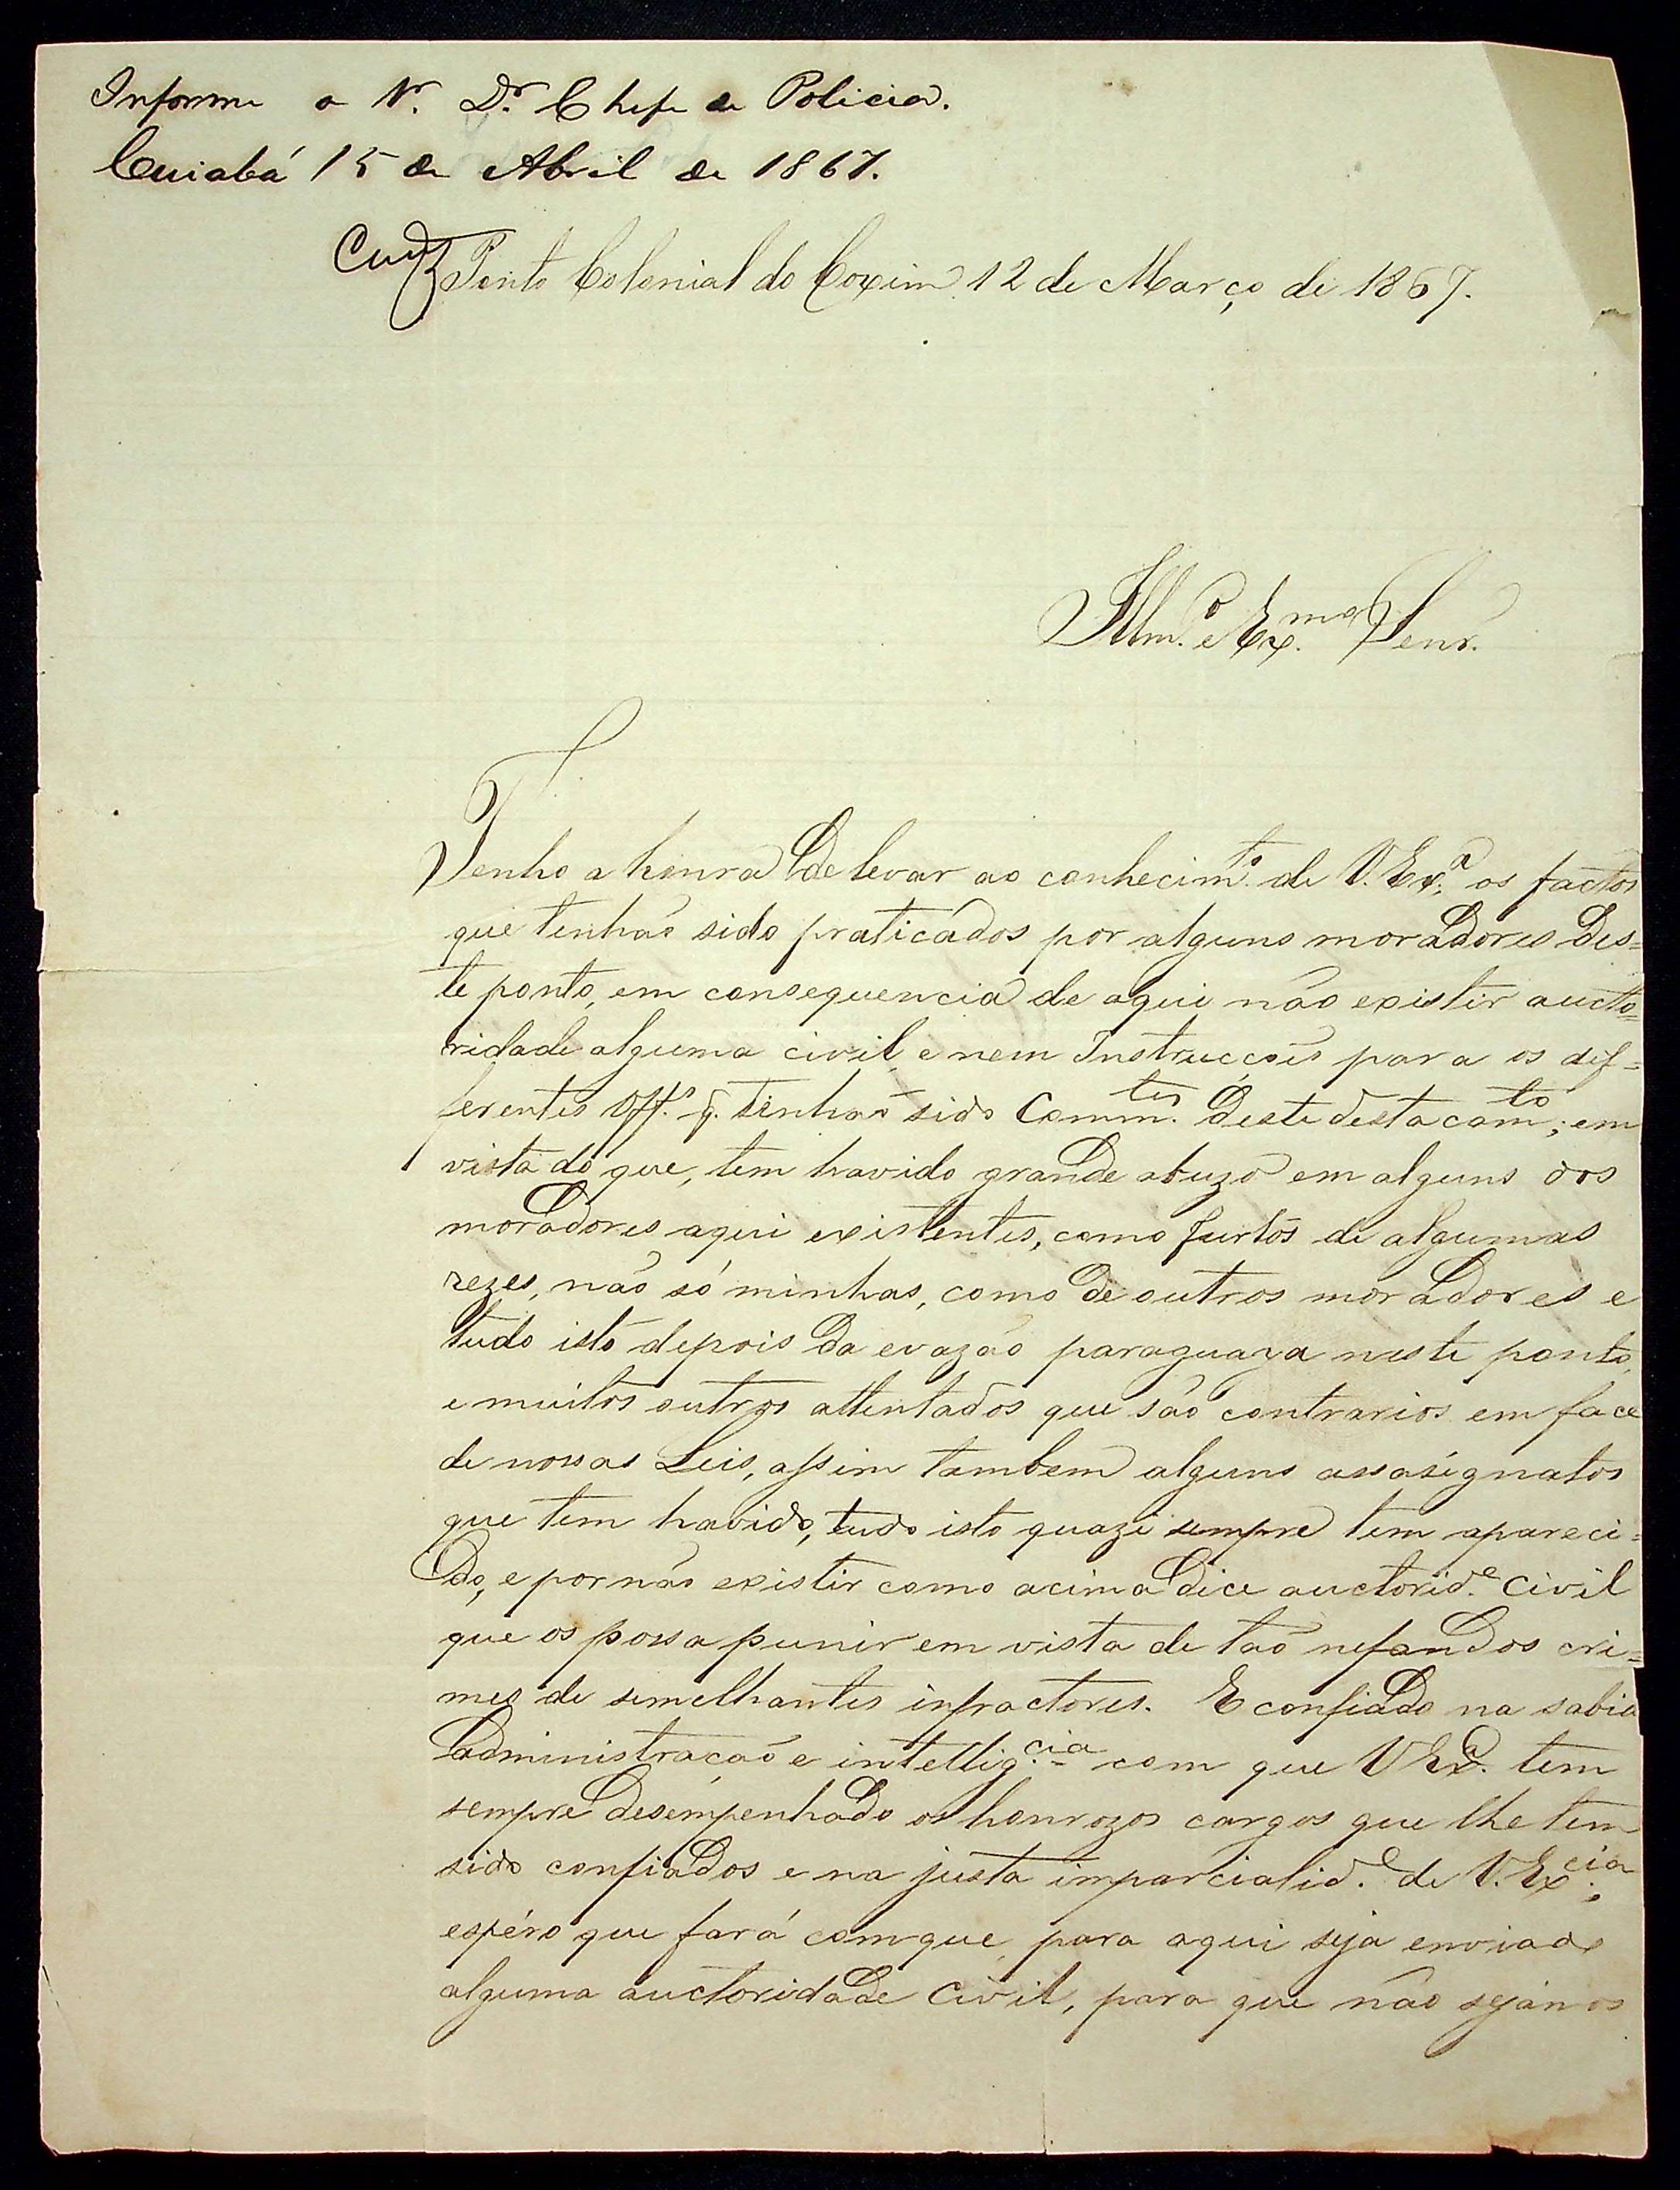 Informe o Sr. Dr. Chefe de Policia.
Cuiabá 15 de Abril de 1867.
Ponto Colonial do Coxim 12 de Março de 1867.
Illm.º e Ex.mo Senr.
Tenho a honra de levar ao conhecim.to de V. Ex.ª os factos
que tenhaõ sido praticados por alguns moradores des=
te ponto, em consequencia de aqui não existir aucto=
ridade alguma civil, e nem Instrucçoẽs para os dif=
ferentes Off.s q. tenhaõ sido Comm.tes deste destacam.to; em
vista do que, tem havido grande abuzo em alguns dos
moradores aqui existentes, como furtos de algumas
rezes, naõ só minhas, como de outros moradores e
tudo isto depois da evazaõ paraguaya neste ponto,
e muitos outros attentados que saõ contrarios em face
de nossas Leis, assim tambem alguns assasignatos
que tem havido, tudo isto quazi sempre tem apareci=
do, e por naõ existir como acima dice auctorid.e Civil
que os possa punir em vista de taõ nefandos cri=
mes de semelhantes infractores. E confiado na sabia
administraçaõ e intellig.cia com que V Ex.ª tem
sempre desempenhado os honrozos cargos que lhe tem
sido confiados e na justa imparcialid.e de V. Ex.cia,
espéro que fará com que para aqui seja enviado
alguma auctoridade Civil, para que não sejan os